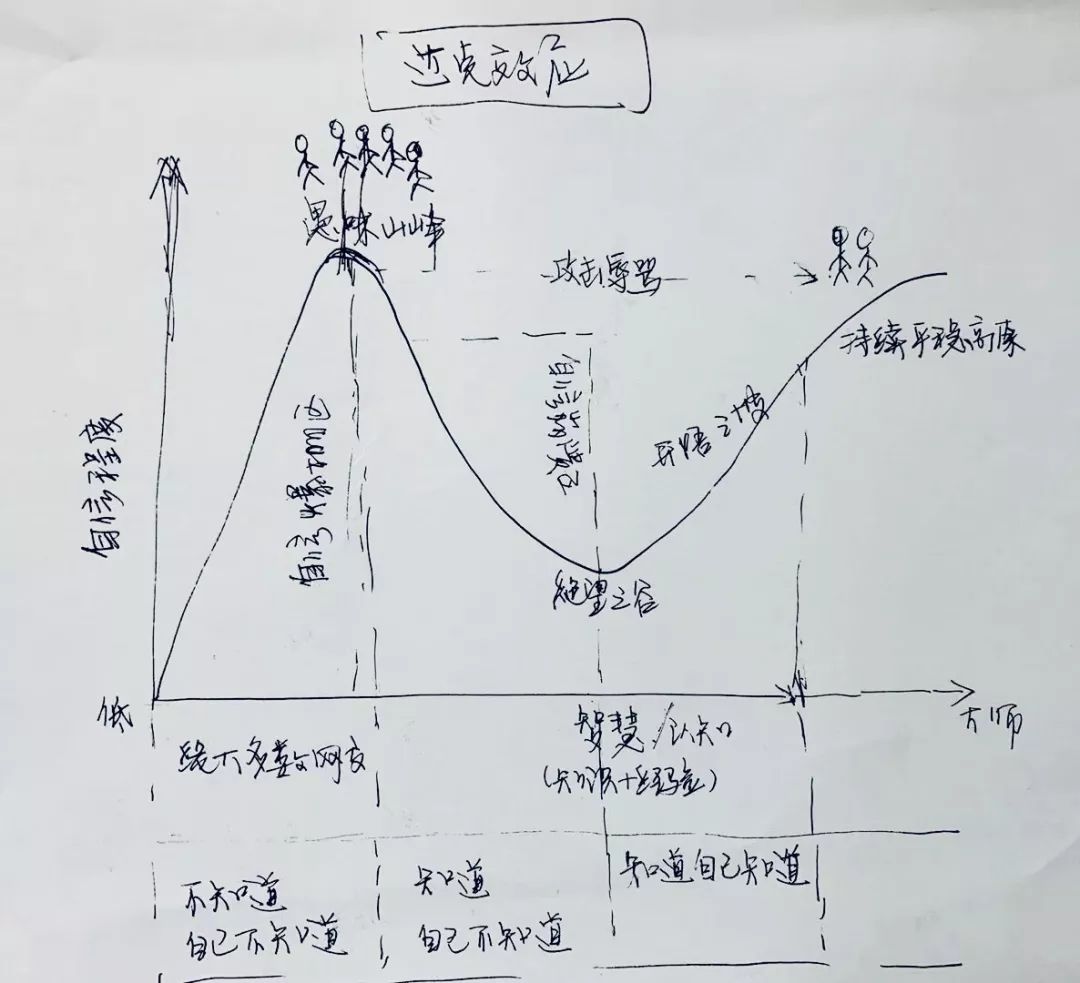 达克效应
愚昧山峰
攻击辱骂
持续平稳高原
自信程度
自信爆棚
自信崩溃区
开悟之坡
绝望之谷
低
大师
绝大多数网友
智慧/认知
(知识+经验)
不知道
自己不知道
知道
自己不知道
知道自己知道